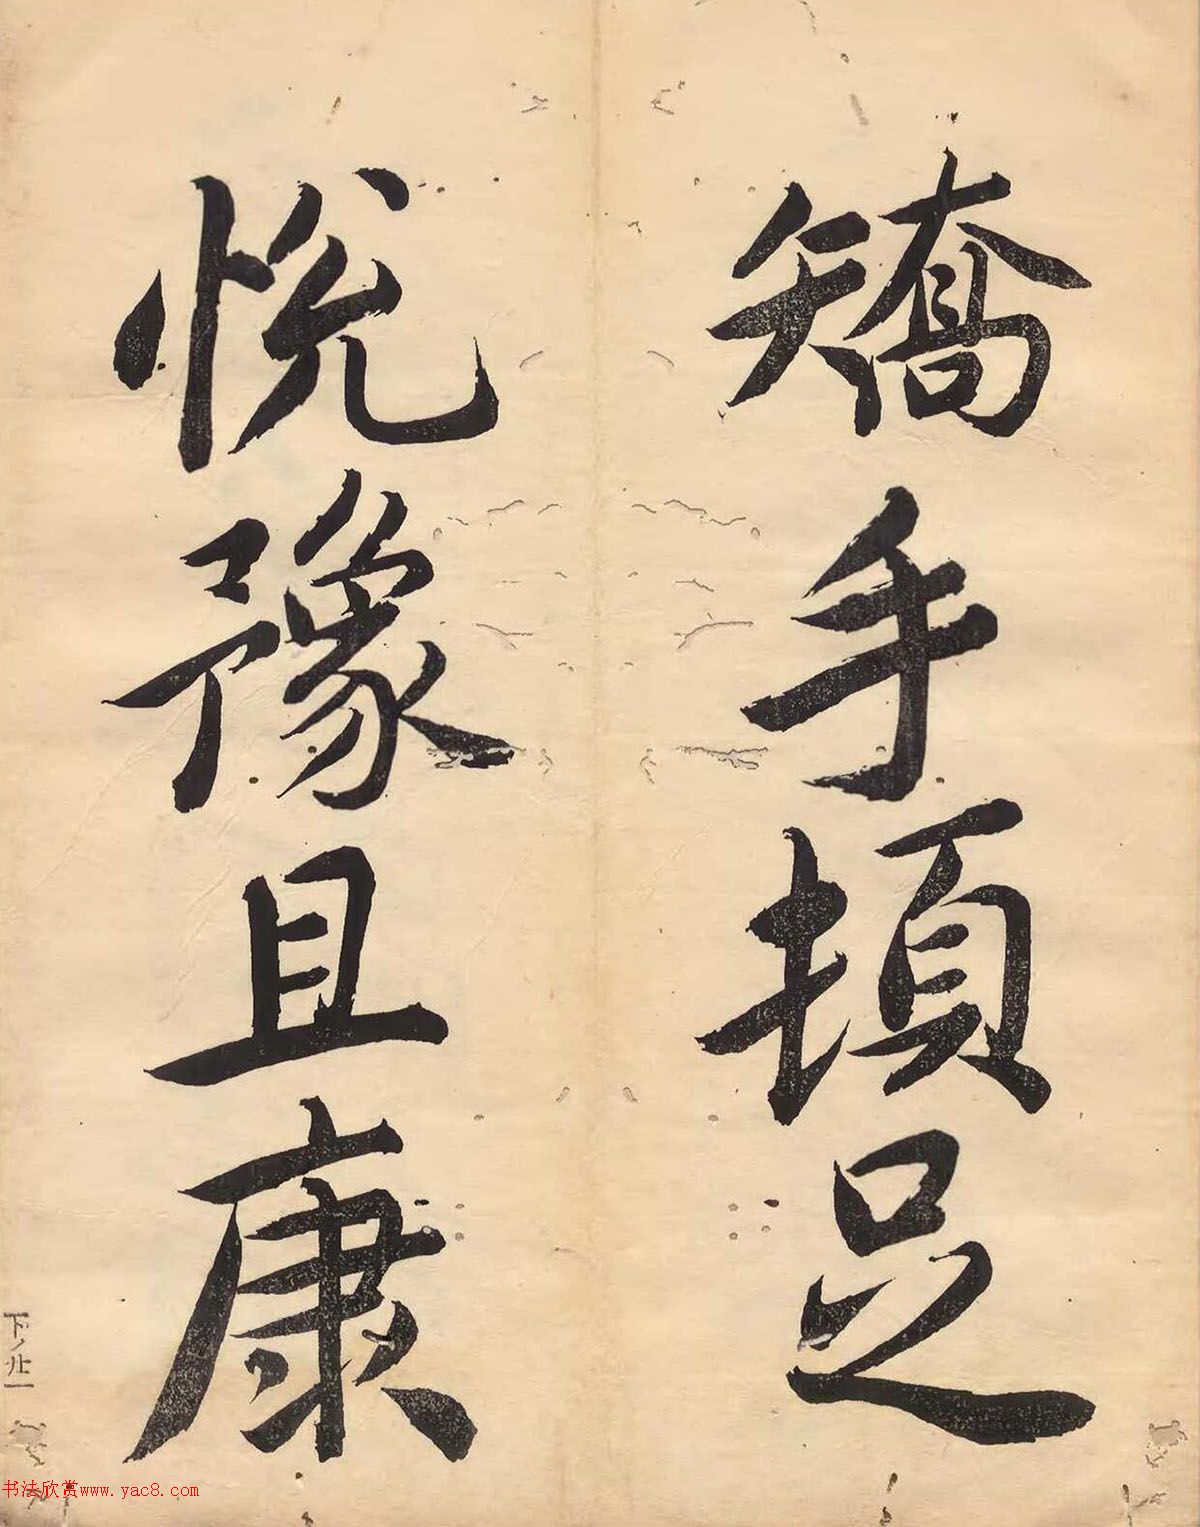 矯手頓足
悦豫且康
书法欣赏www.yac8.com